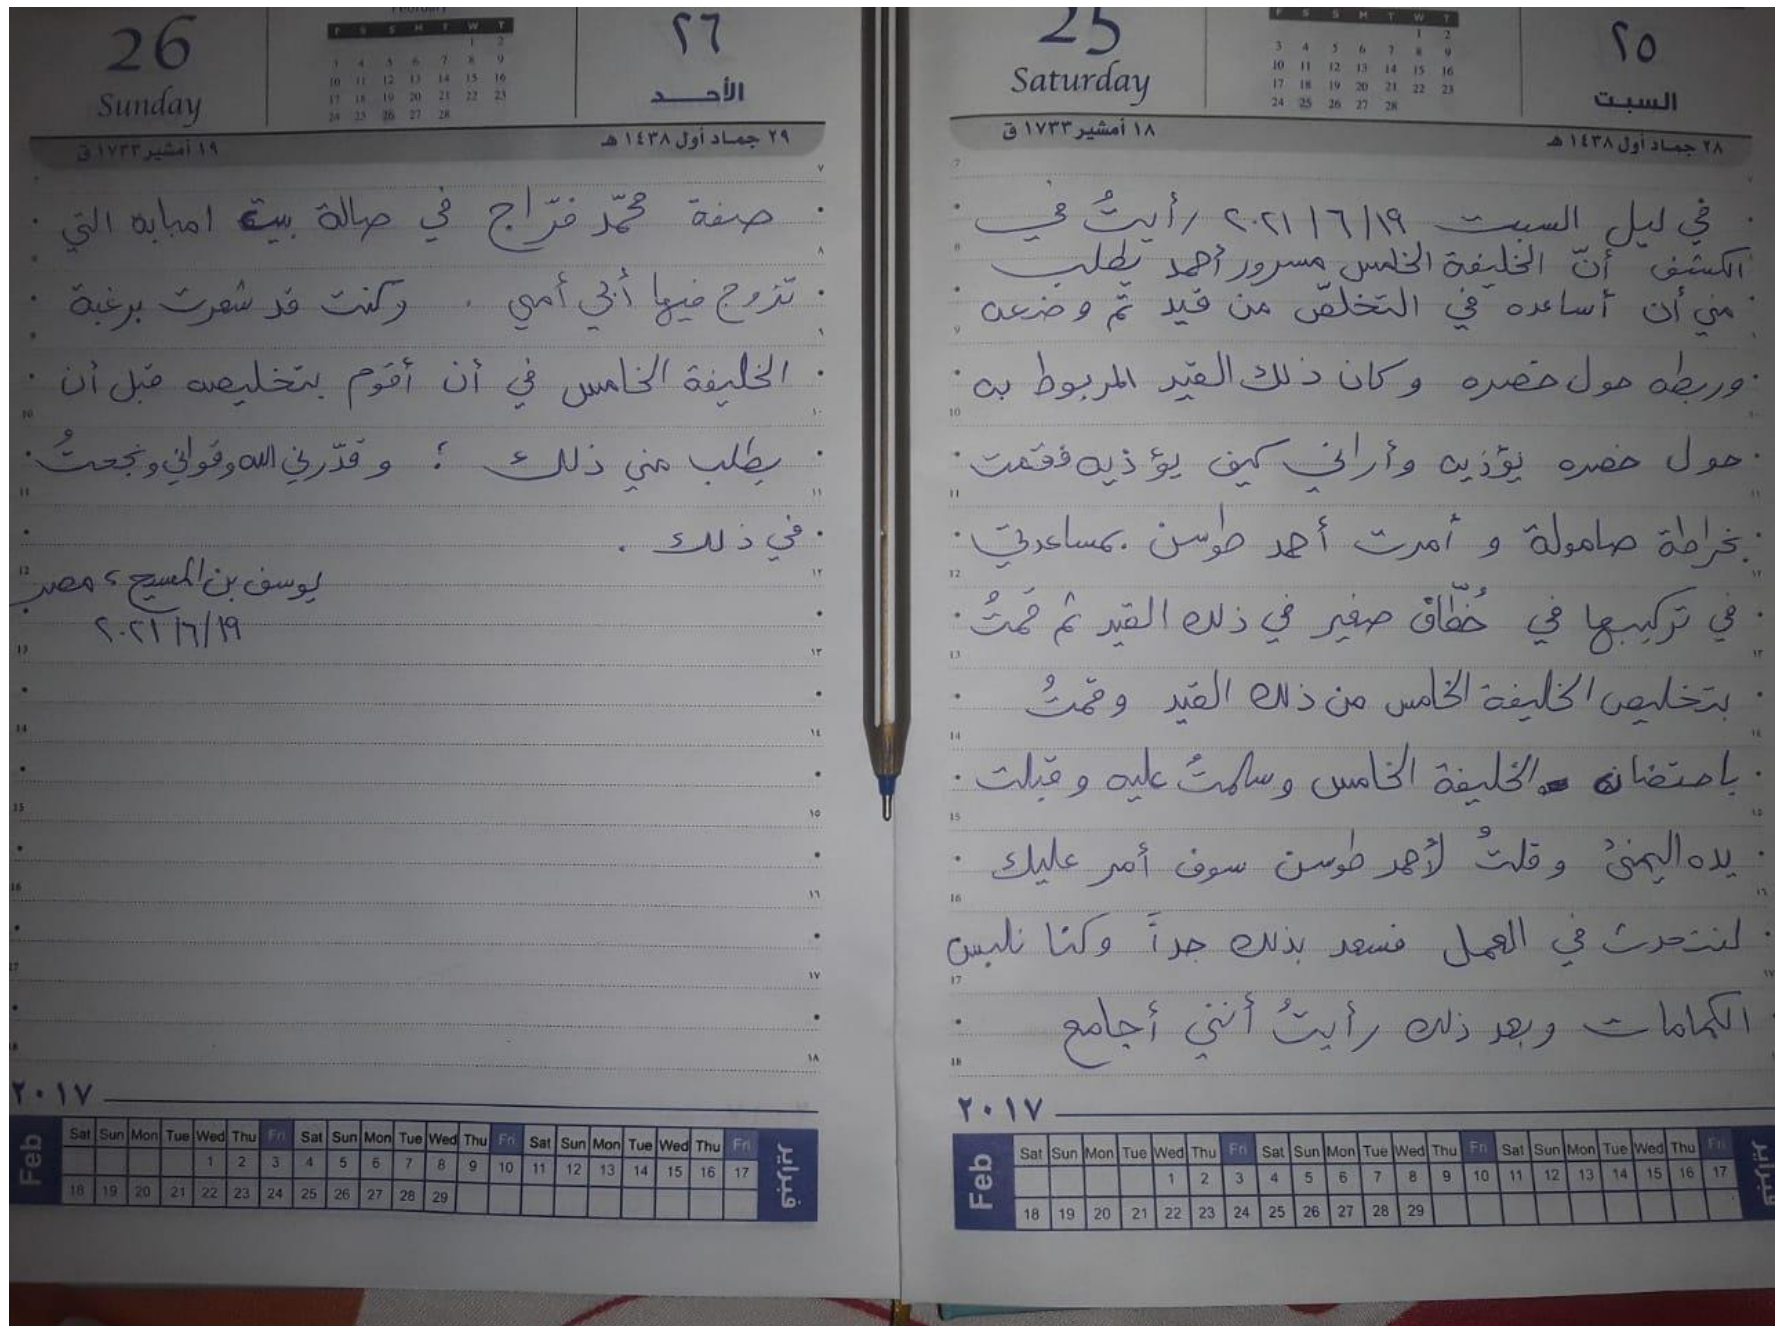 25
Saturday
F S S M T W T
1 2
3 4 5 6 7 8 9
10 11 12 13 14 15 16
17 18 19 20 21 22 23
24 25 26 27 28
٢٥
السبت
١٨ أمشير ١٧٣٣ ق
٢٨ جماد أول ١٤٣٨ هـ
في ليل السبت ٢٠٢١/٦/١٩ رأيتُ في
الكشف أنّ الخليفة الخامس مسرور أحمد يطلب
مني أن أساعده في التخلص من قيد تمّ وضعه
وربطه حول خصره وكان ذلك القيد المربوط به
حول خصره يؤذيه وأراني كيف يؤذيه فقمت
بخراطة صامولة و أمرت أحمد طوسن بمساعدتي
في تركيبها في خُطّاف صغير في ذلك القيد ثم قمتُ
بتخليص الخليفة الخامس من ذلك القيد وقمتُ
باحتضان الخليفة الخامس وسلمتُ عليه و قبلت
يده اليمنىٰ وقلتُ لأحمد طوسن سوف أمر عليك
لنتحدث في العمل فسعد بذلك جداً وكنا نلبس
الكمامات وبعد ذلك رأيتُ أنني أجامع
٢٠١٧
Feb
Sat Sun Mon Tue Wed Thu Fri Sat Sun Mon Tue Wed Thu Fri Sat Sun Mon Tue Wed Thu Fri
1 2 3 4 5 6 7 8 9 10 11 12 13 14 15 16 17
18 19 20 21 22 23 24 25 26 27 28 29
فبراير
26
Sunday
February
F S S M T W T
1 2
3 4 5 6 7 8 9
10 11 12 13 14 15 16
17 18 19 20 21 22 23
24 25 26 27 28
٢٦
الأحد
١٩ أمشير ١٧٣٣ ق
٢٩ جماد أول ١٤٣٨ هـ
صفة محمّد فرّاج في صالة بيت امبابه التي
تزوج فيها أبي أمي . وكنت قد شعرت برغبة
الخليفة الخامس في أن أقوم بتخليصه قبل أن
يطلب مني ذلك ؛ و قدّرني الله وقواني ونجحتُ
في ذلك .
يوسف بن المسيح ، مصر
٢٠٢١/٦/١٩
٢٠١٧
Feb
Sat Sun Mon Tue Wed Thu Fri Sat Sun Mon Tue Wed Thu Fri Sat Sun Mon Tue Wed Thu Fri
1 2 3 4 5 6 7 8 9 10 11 12 13 14 15 16 17
18 19 20 21 22 23 24 25 26 27 28 29
فبراير